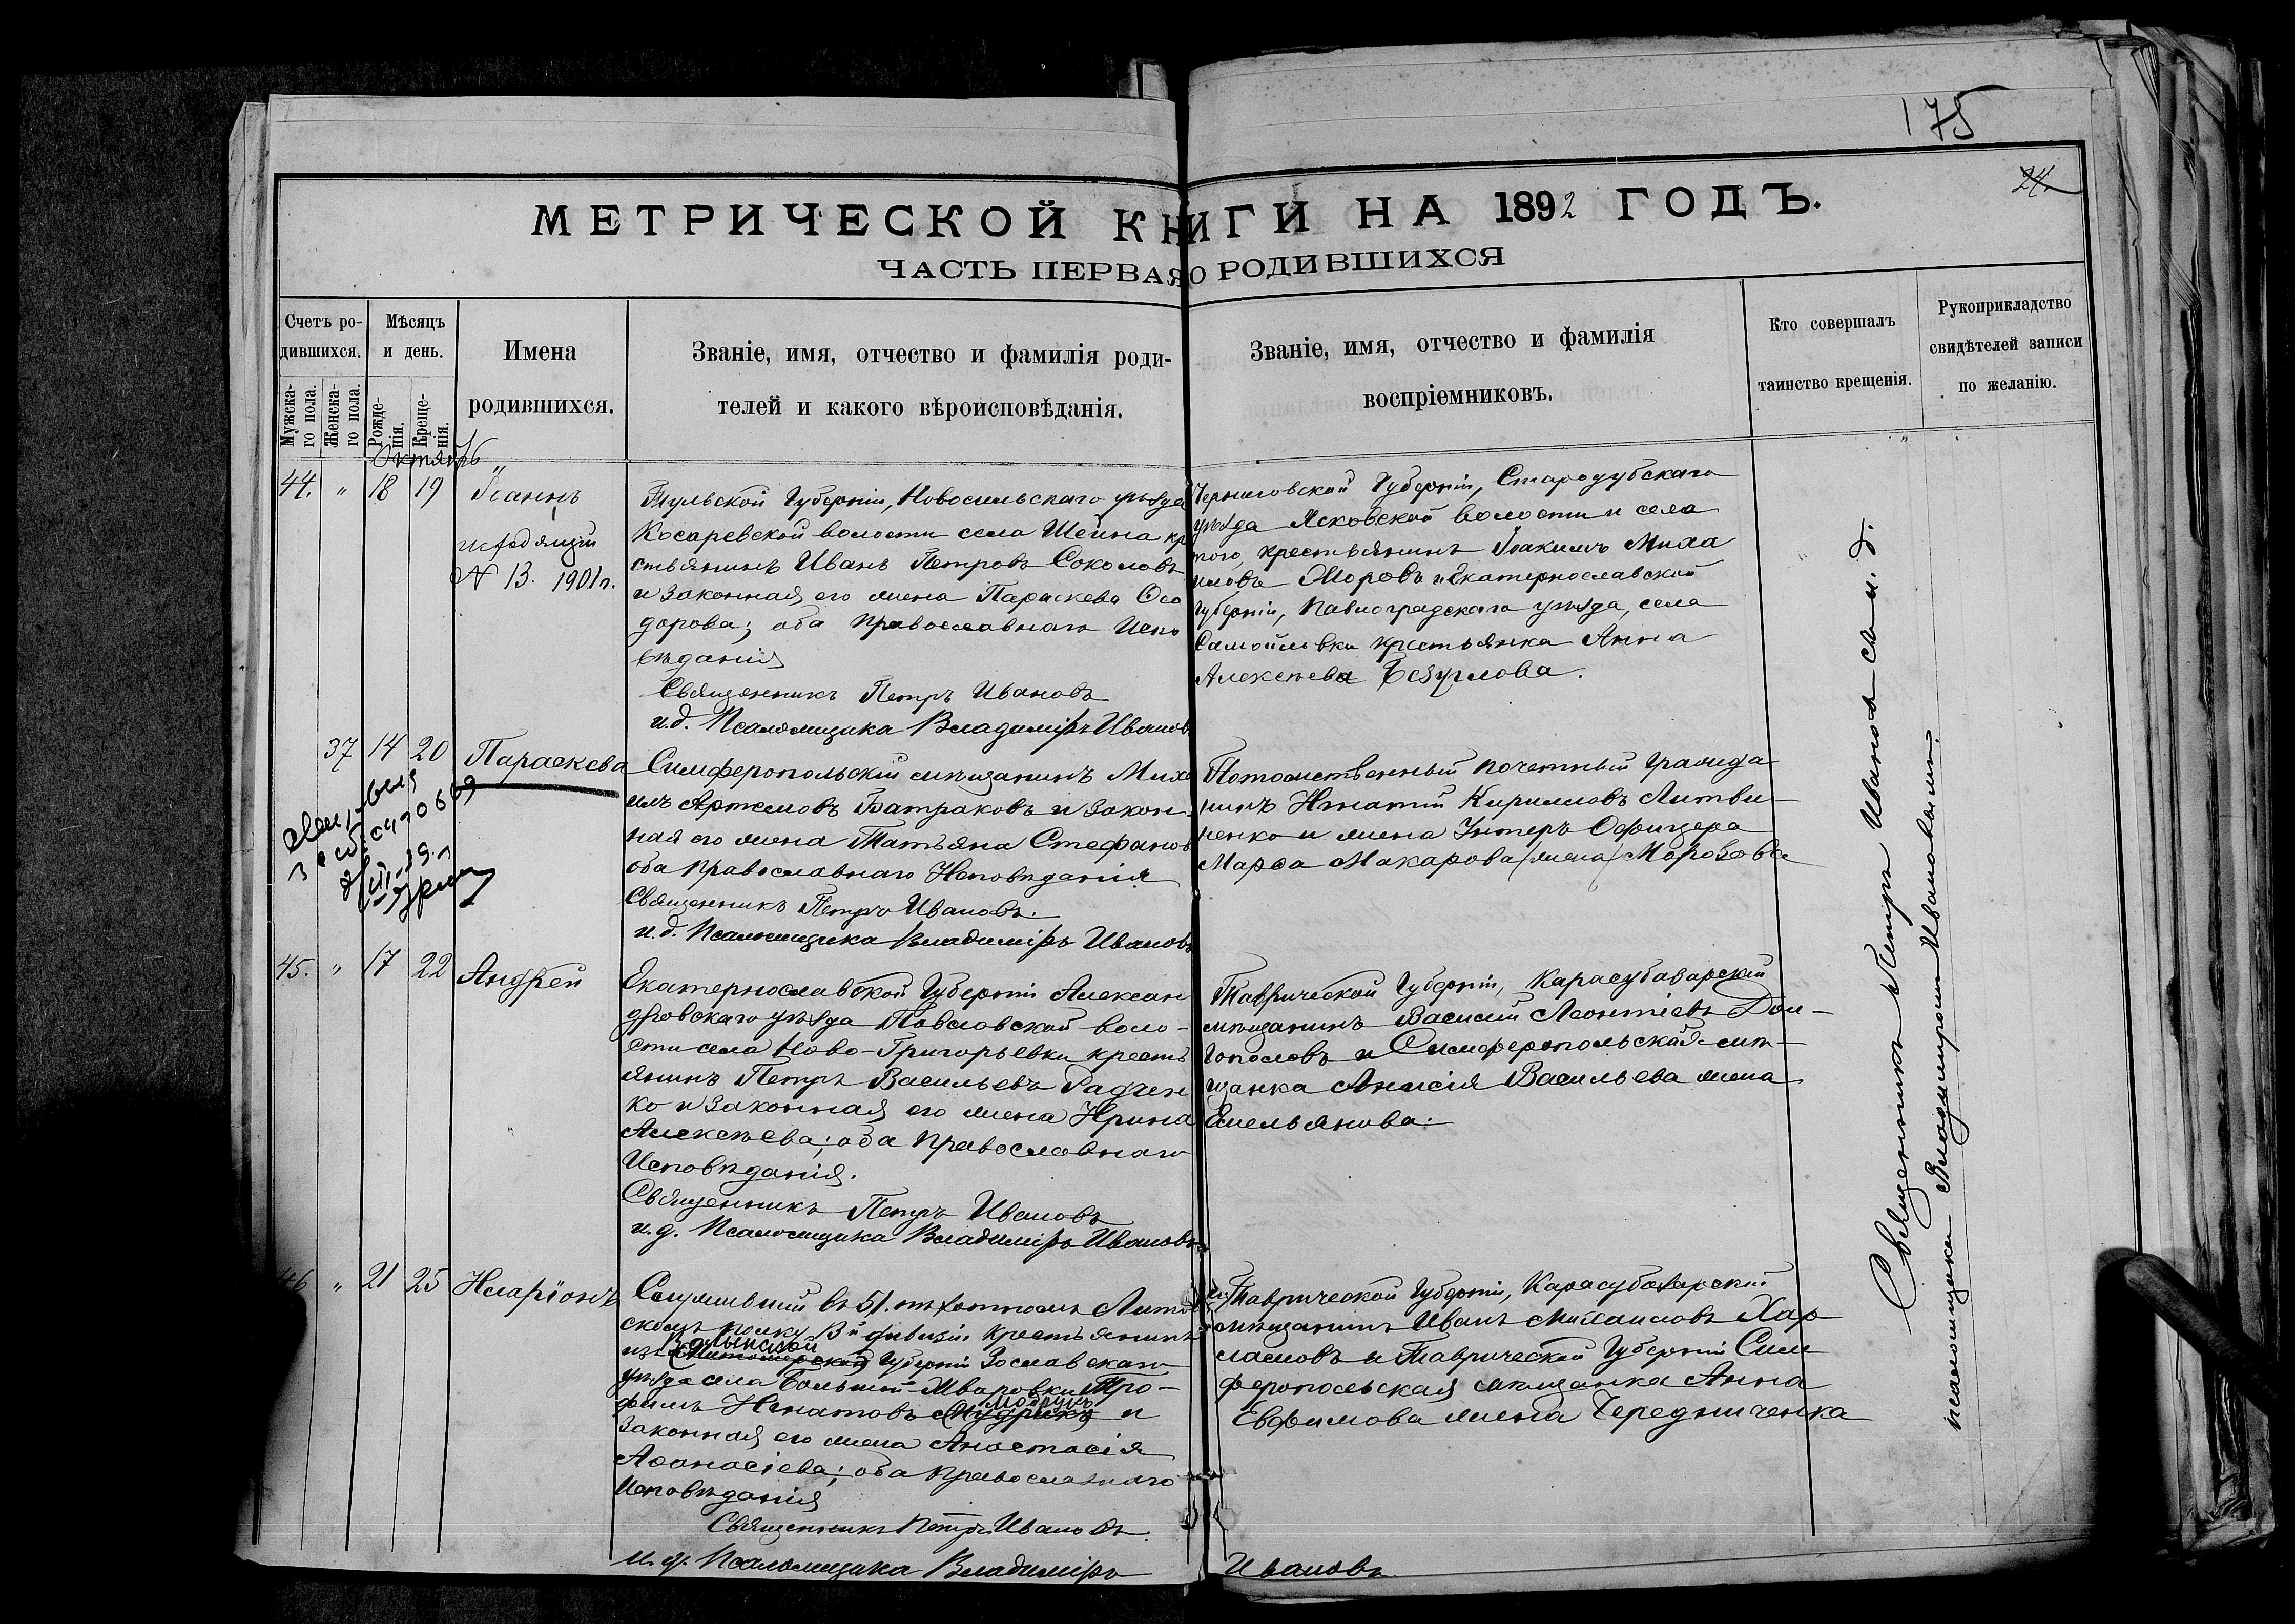 175
24.
МЕТРИЧЕСКОЙ КНИГИ НА 1892 ГОДЪ.
ЧАСТЬ ПЕРВАЯ О РОДИВШИХСЯ
Счетъ ро-
дившихся.
Мужска-
го пола.
Женска-
го пола.
Мѣсяцъ
и день.
Рожде-
нія.
Креще-
нія.
Имена
родившихся.
Званіе, имя, отчество и фамилія роди-
телей и какого вѣроисповѣданія.
Званіе, имя, отчество и фамилія
воспріемниковъ.
Кто совершалъ
таинство крещенія.
Рукоприкладство
свидѣтелей записи
по желанію.
Октябрь
44. " 18 19 Іоаннъ
исходящій
№ 13. 1901 г.
Тульской Губерніи, Новосильскаго уѣзда
Косаревской волости села Шеина кре
стьянинъ Иванъ Петровъ Соколовъ
и законная его жена Параскева Ѳео
дорова; оба Православнаго Испо
вѣданія
Священникъ Петръ Ивановъ
и.д. Псаломщика Владиміръ Ивановъ
Черниговской Губерніи, Стародубскаго
уѣзда Лсковской волости и села
того, крестьянинъ Іоакимъ Миха
иловъ Моровъ и Екатеринославской
Губерніи, Павлоградскаго уѣзда, села
Самойловки крестьянка Анна
Алексѣева
37 14 20 Параскева
Симферопольскій мѣщанинъ Миха
илъ Артемовъ Батраковъ и закон
ная его жена Татьяна Стефанов
оба Православнаго Исповѣданія
Священникъ Петръ Ивановъ.
и.д. Псаломщика Владиміръ Ивановъ
Потомственный почетный гражда
нинъ Игнатій Кирилловъ Литви-
ненко и жена Унтеръ Офицера
Марѳа Макарова (жена) Морозова
45. " 17 22 Андрей
Екатеринославской Губерніи Алексан
дровскаго уѣзда Павловской воло-
сти села Ново-Григорьевки кресть
янинъ Петръ Васильевъ Радчен
ко и законная его жена Ирина
Алексѣева; оба Православнаго
Исповѣданія.
Священникъ Петръ Ивановъ
и.д. Псаломщика Владиміръ Ивановъ
Таврической Губерніи, Карасубазарскій
мѣщанинъ Василій Леонтіевъ Дол-
гополовъ и Симферопольская мѣ-
щанка Анисія Васильева жена
Емельянова.
46 " 21 25 Иларіонъ
Служившій въ 51. пѣхотномъ Литов
скомъ полку 13й дивизіи крестьянинъ
Волынской
изъ Житомирской Губерніи Зославскаго
уѣзда села Большой-Шваровки Тро-
Мобрукъ
фимъ Игнатовъ Мудрикъ и
законная его жена Анастасія
Аѳанасіева; оба Православнаго
Исповѣданія
Священникъ Петръ Ивановъ.
и.д. Псаломщика Владиміръ Ивановъ.
Таврической Губерніи, Карасубазарскій
мѣщанинъ Иванъ Михаиловъ Хар
ламовъ и Таврической Губерніи Сим
феропольская мѣщанка Анна
Евфимова жена Чередниченка
Священникъ Петръ Ивановъ съ и. д.
псаломщика Владиміромъ Ивановымъ.